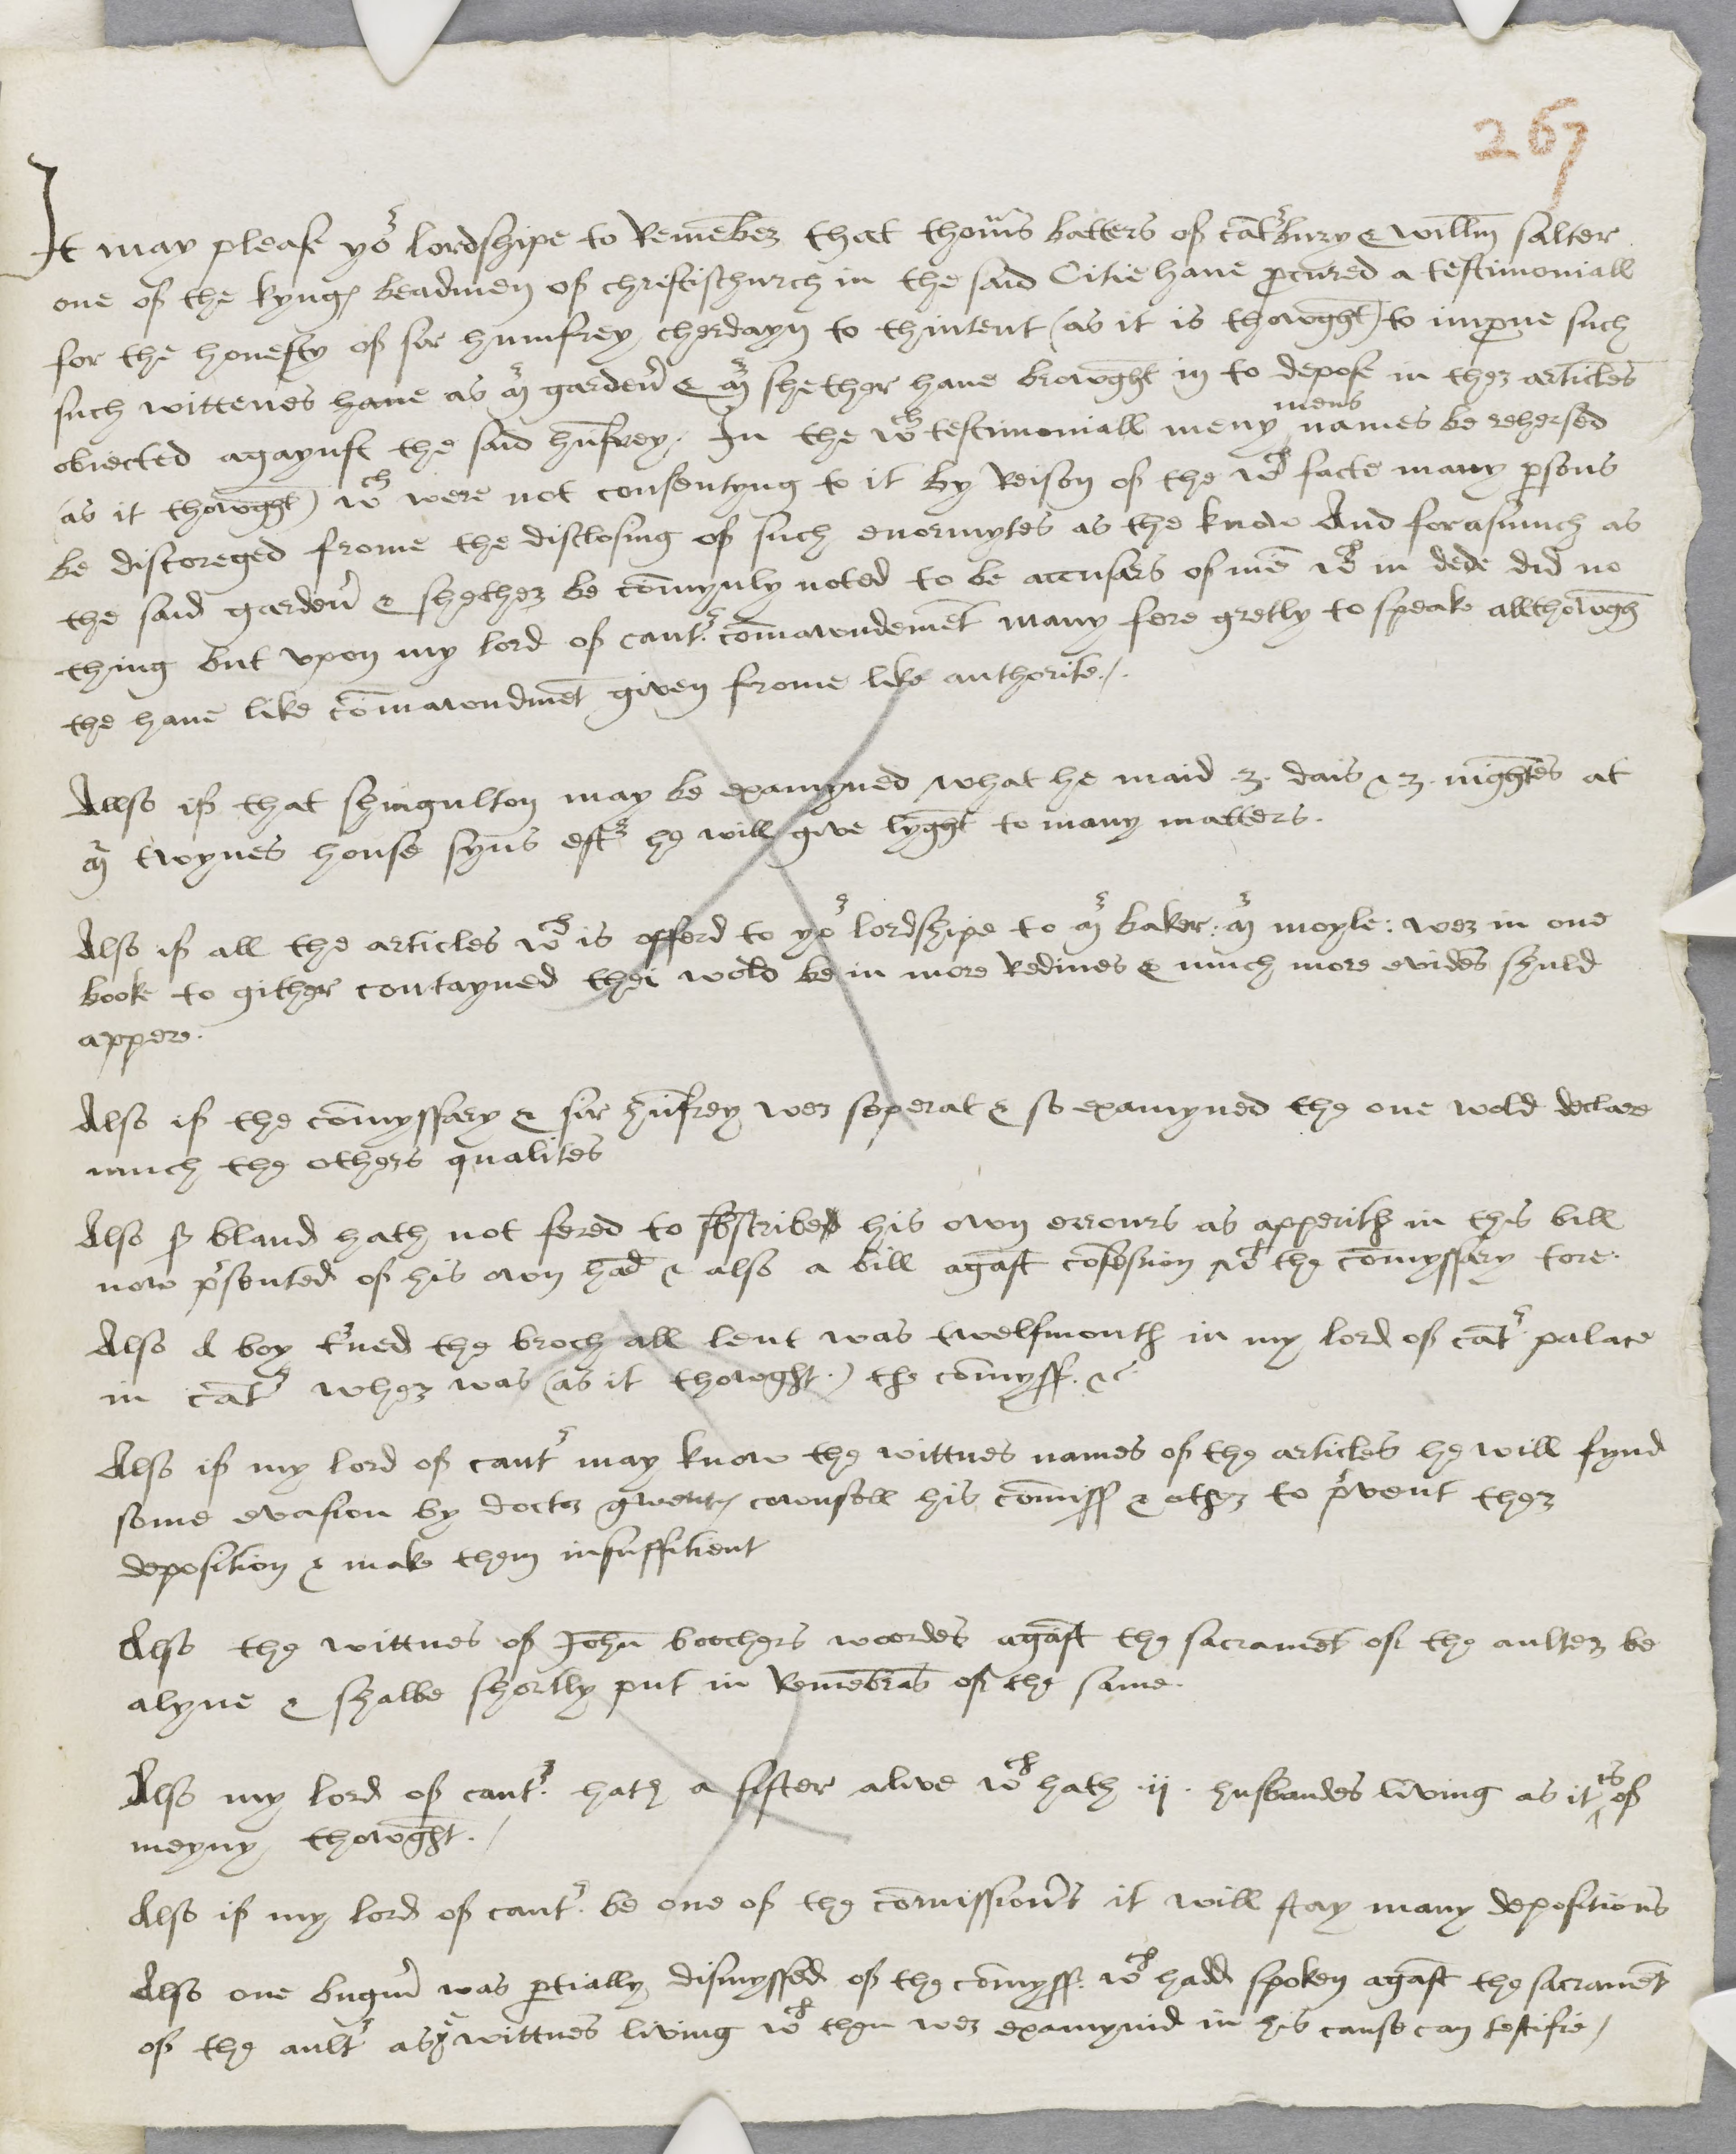 267
It may please yor lordshipe to Remēber that thom̄s batters of cātrbury & will̄m salter
one of the kynges beadmen of christischurch in the said Citie have procured a testimoniall
for the honesty of sir humfrey cherdayn to thintent (as it is thowght) to improve such
such wittenes have as mr gardenr & mr shether have browght in to depose in ther articles
obiected agaynst the said hūfrey. In the wch testimoniall meny mens names be rehersed
(as it thowght) wch were not consentyng to it by Reison of the wch facte many persons
be discoreged frome the disclosing of such enormytes as the know And forasmuch as
the said gardenr & shether be cōmynly noted to be accusers of mē wch in dede did no
thing but vpon my lord of cantr. cōmawndemēt many fere gretly to speak allthowgh
the have like cōmawndmēt given frome like authorite /.
Allso if that shingulton may be examyned what he maid .3. dais & 3. nightes at
mr twynes house syns estr he will give lyght to many matters.
Also if all the articles wch is offerd to yor lordshipe to mr baker: mr moyle: wer in one
booke to gither contayned thei wold be in more Redines & much more evidēs shuld
appere.
Also if the cōmyssary & sir hūfrey wer seperat & so examyned the one wold declare
much the others qualites
Also sr bland hath not fered to sbscribe his own errours as apperith in this bill
now presented of his own hād & also a bill agāst cōfession wch the cōmyssary tore.
Also A boy trned the broch all lent was twelfmonth in my lord of cātr. palace
in cātr wher was (as it thowght.) the cōmyss. &c
Also if my lord of cantr may know the wittnes names of the articles he will fynd
some evasion by docter gwentes cownsell his cōmiss & other to prevent ther
deposition & make them insufficient
Also the wittnes of Johñ boochers woordes agāst the sacramēt of the aulter be
alyve & shalbe shortly put in Remēbrās of the same.
Also my lord of cantr. hath a sister alive wch hath .ij. husbandes living as it is of
meyny thowght./
Also if my lord of cantr. be one of the cōmissionrs it will stay many depositions
Also one bugmr was partially dismyssed of the cōmyss. wch hadd spoken agāst the sacramēt
of the aultr as ye wittnes living wch then wer examynid in his cause can testifie /